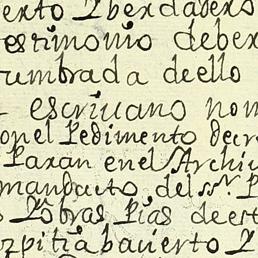 ierto Y berdadero
estimonio deber
umbrada de ello
escriuano nom
on el Pedimento decre
Paxan en el Archiu
mandacto, del sr. P
obras Pias de est
ozpitia bauierto Y